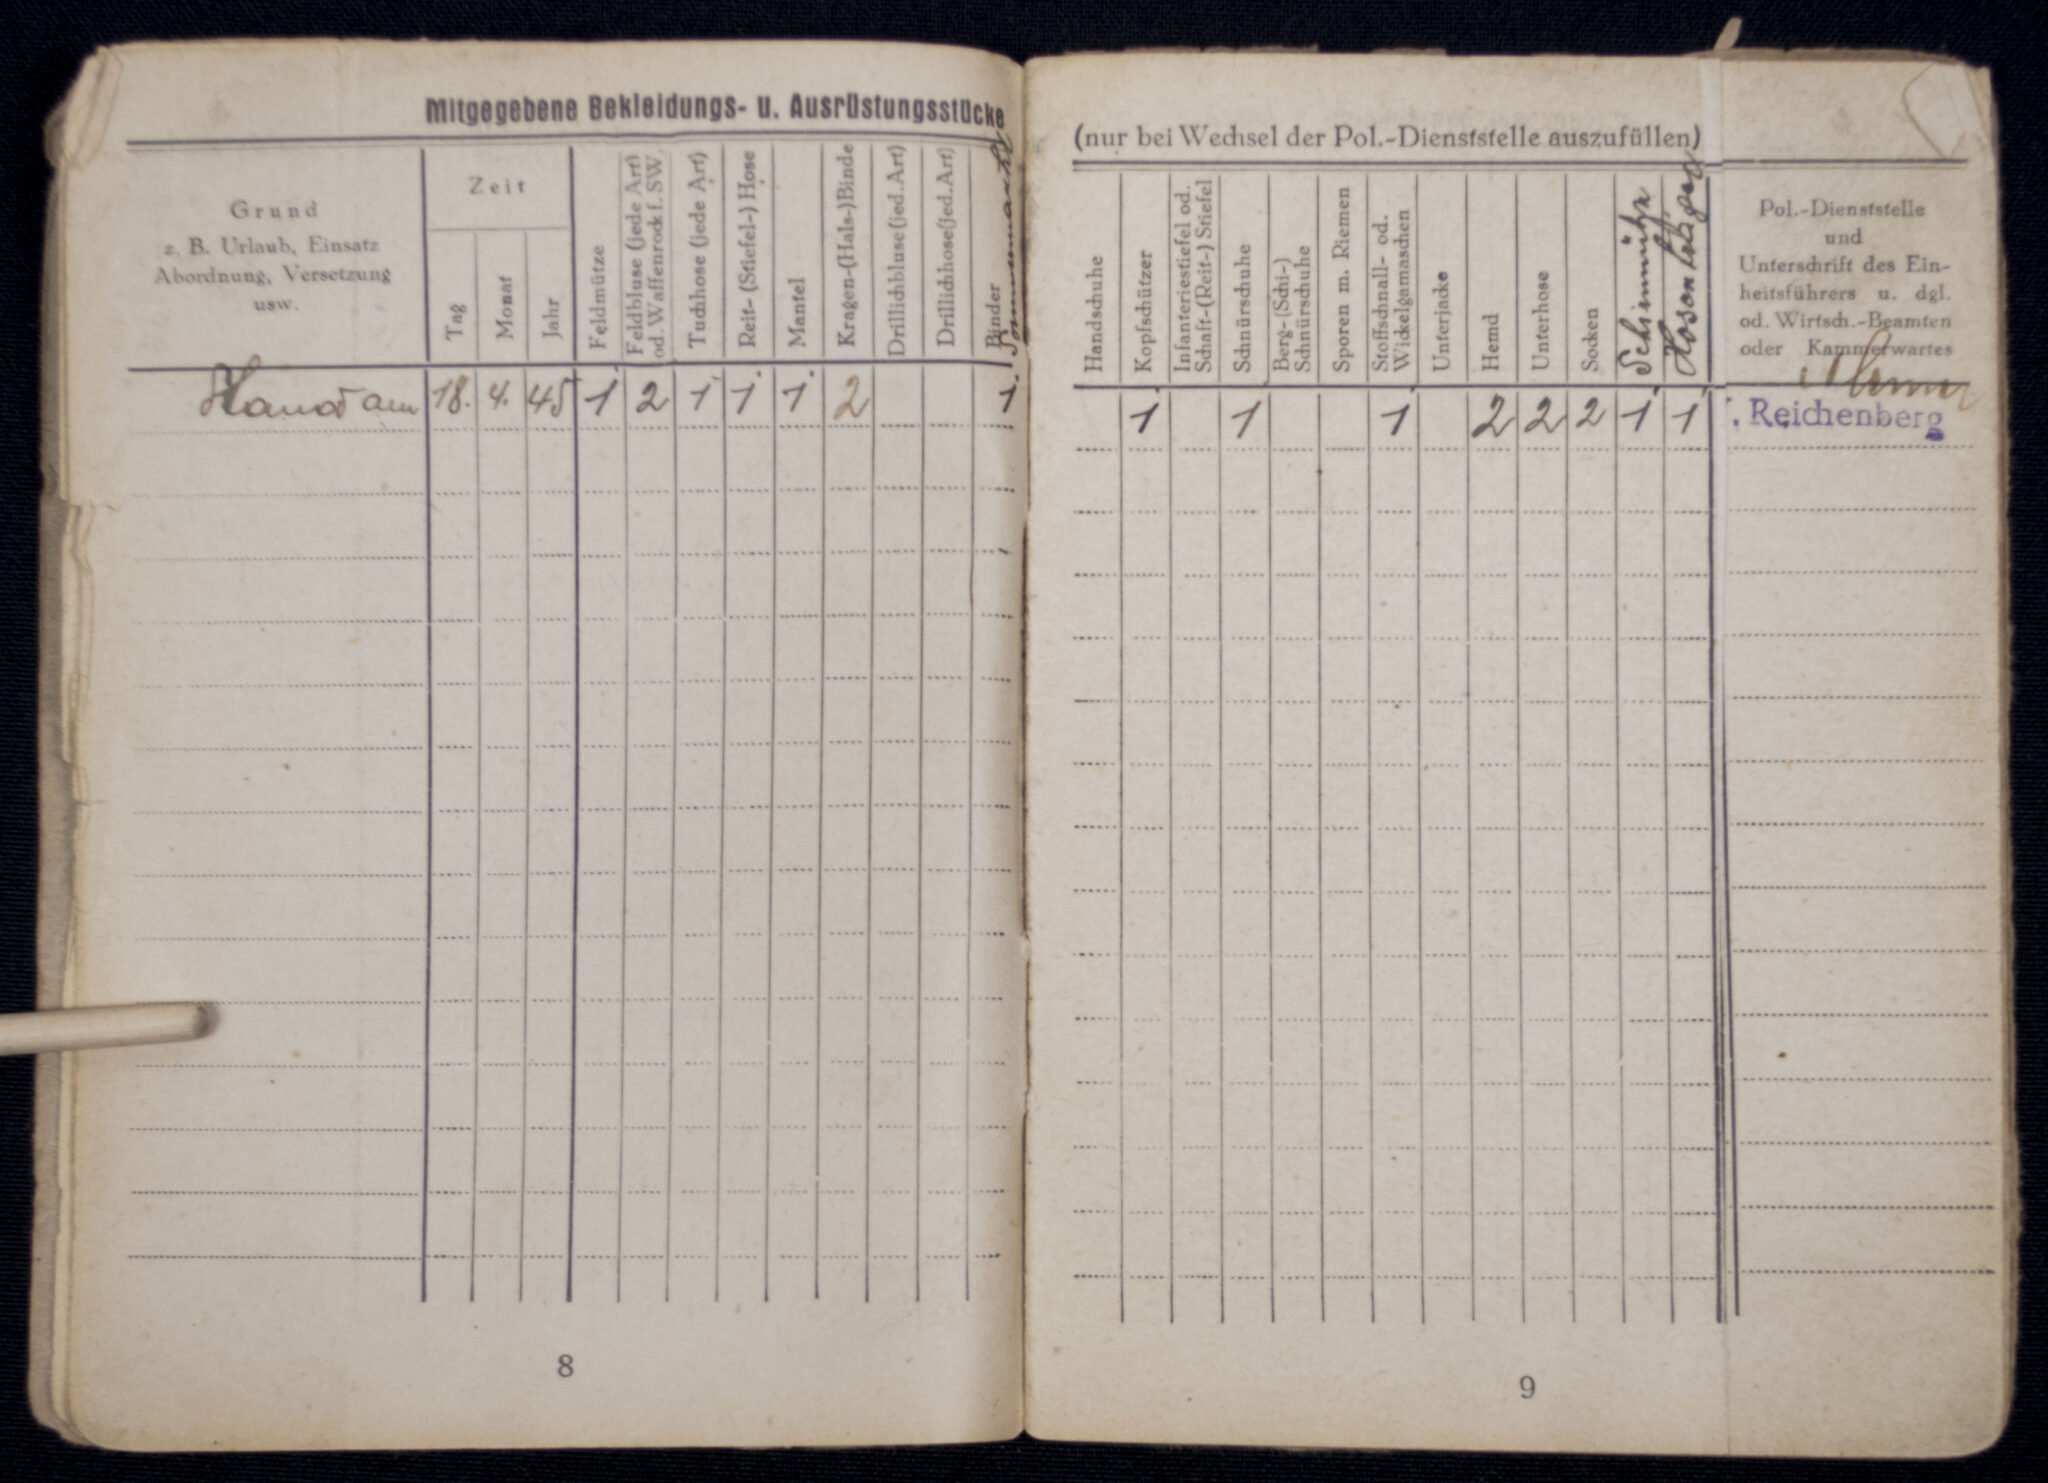 Mitgegebene Bekleidungs- u. Ausrüstungsstücke
Grund
z. B. Urlaub, Einsatz
Abordnung, Versetzung
usw.
Zeit
Tag
Monat
Jahr
Feldmütze
Feldbluse (jede Art)
od. Waffenrock f. SW.
Tuchhose (jede Art)
Reit- (Stiefel-) Hose
Mantel
Kragen-(Hals-)Binde
Drillichbluse(jed.Art)
Drillichhose(jed.Art)
Binder
am 18. 4. 45 1 2 1 1 1 2 1
8
(nur bei Wechsel der Pol.-Dienststelle auszufüllen)
Handschuhe
Kopfschützer
Infanteriestiefel od.
Schaft-(Reit-) Stiefel
Schnürschuhe
Berg-(Schi-)
Schnürschuhe
Sporen m. Riemen
Stoffschnall- od.
Wickelgamaschen
Unterjacke
Hemd
Unterhose
Socken
Schirmmütze
Hosenträger
Pol.-Dienststelle
und
Unterschrift des Ein-
heitsführers u. dgl.
od. Wirtsch.-Beamten
oder Kammerwartes
1 1 1 2 2 2 1 1 . Reichenberg
9